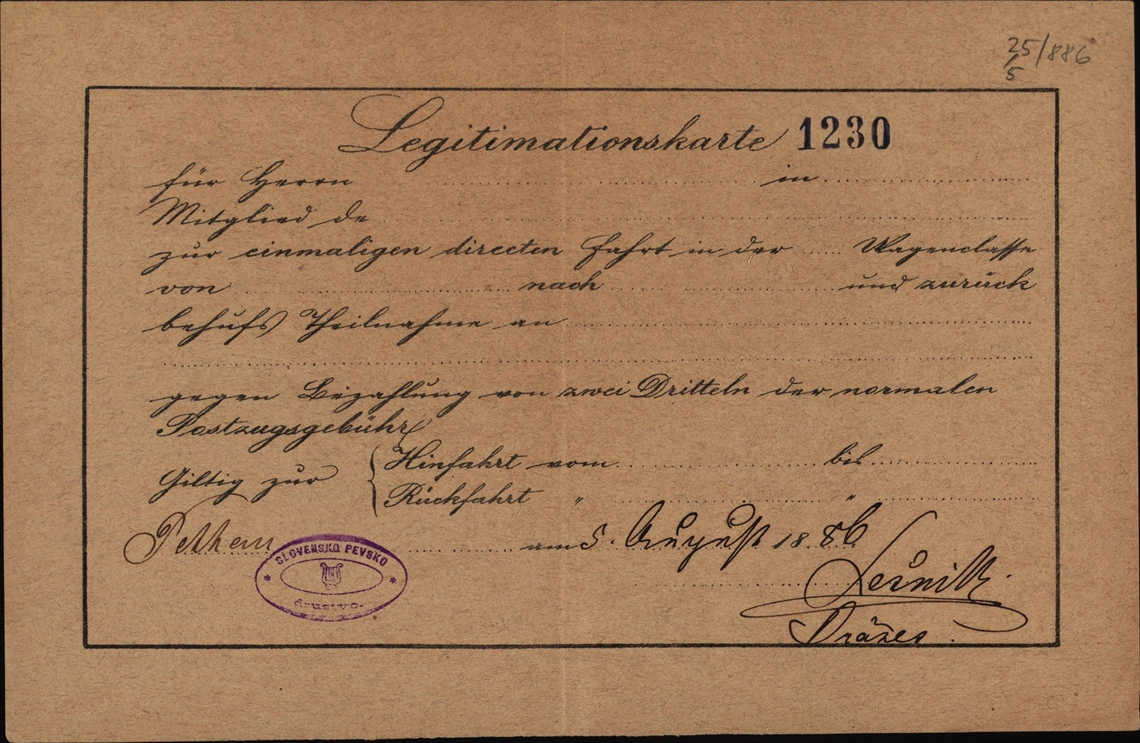 25/5 /886
Legitimationskarte 1230
für Herrn in
Mitglied de
zur einmaligen directen Fahrt in der Wagenclasse
von nach und zurück
behufs Theilnahme an
gegen Bezahlung von zwei Dritteln der normalen
Postzugsgebühr
Giltig zur { Hinfahrt vom bis
Rückfahrt " "
am 5. August 1886
SLOVENSKO PEVSKO
društvo.